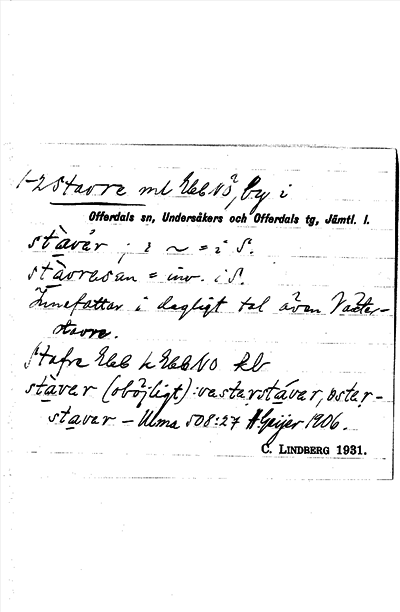 1-2 Stavre ml Ebb NO², by i
Offerdals sn, Undersåkers och Offerdals tg, Jämtl. l.
stàvår ; i ~ = i S.
stàvrasan = inv. i S.
Innefattar i dagligt tal även Väster-
stavre.
Stafre Ebb k EbbNO kb
stàver (oböjligt): vastarstávar, östar-
stavar – Ulma 508:27 H Geijer 1906.
C. LINDBERG 1931.